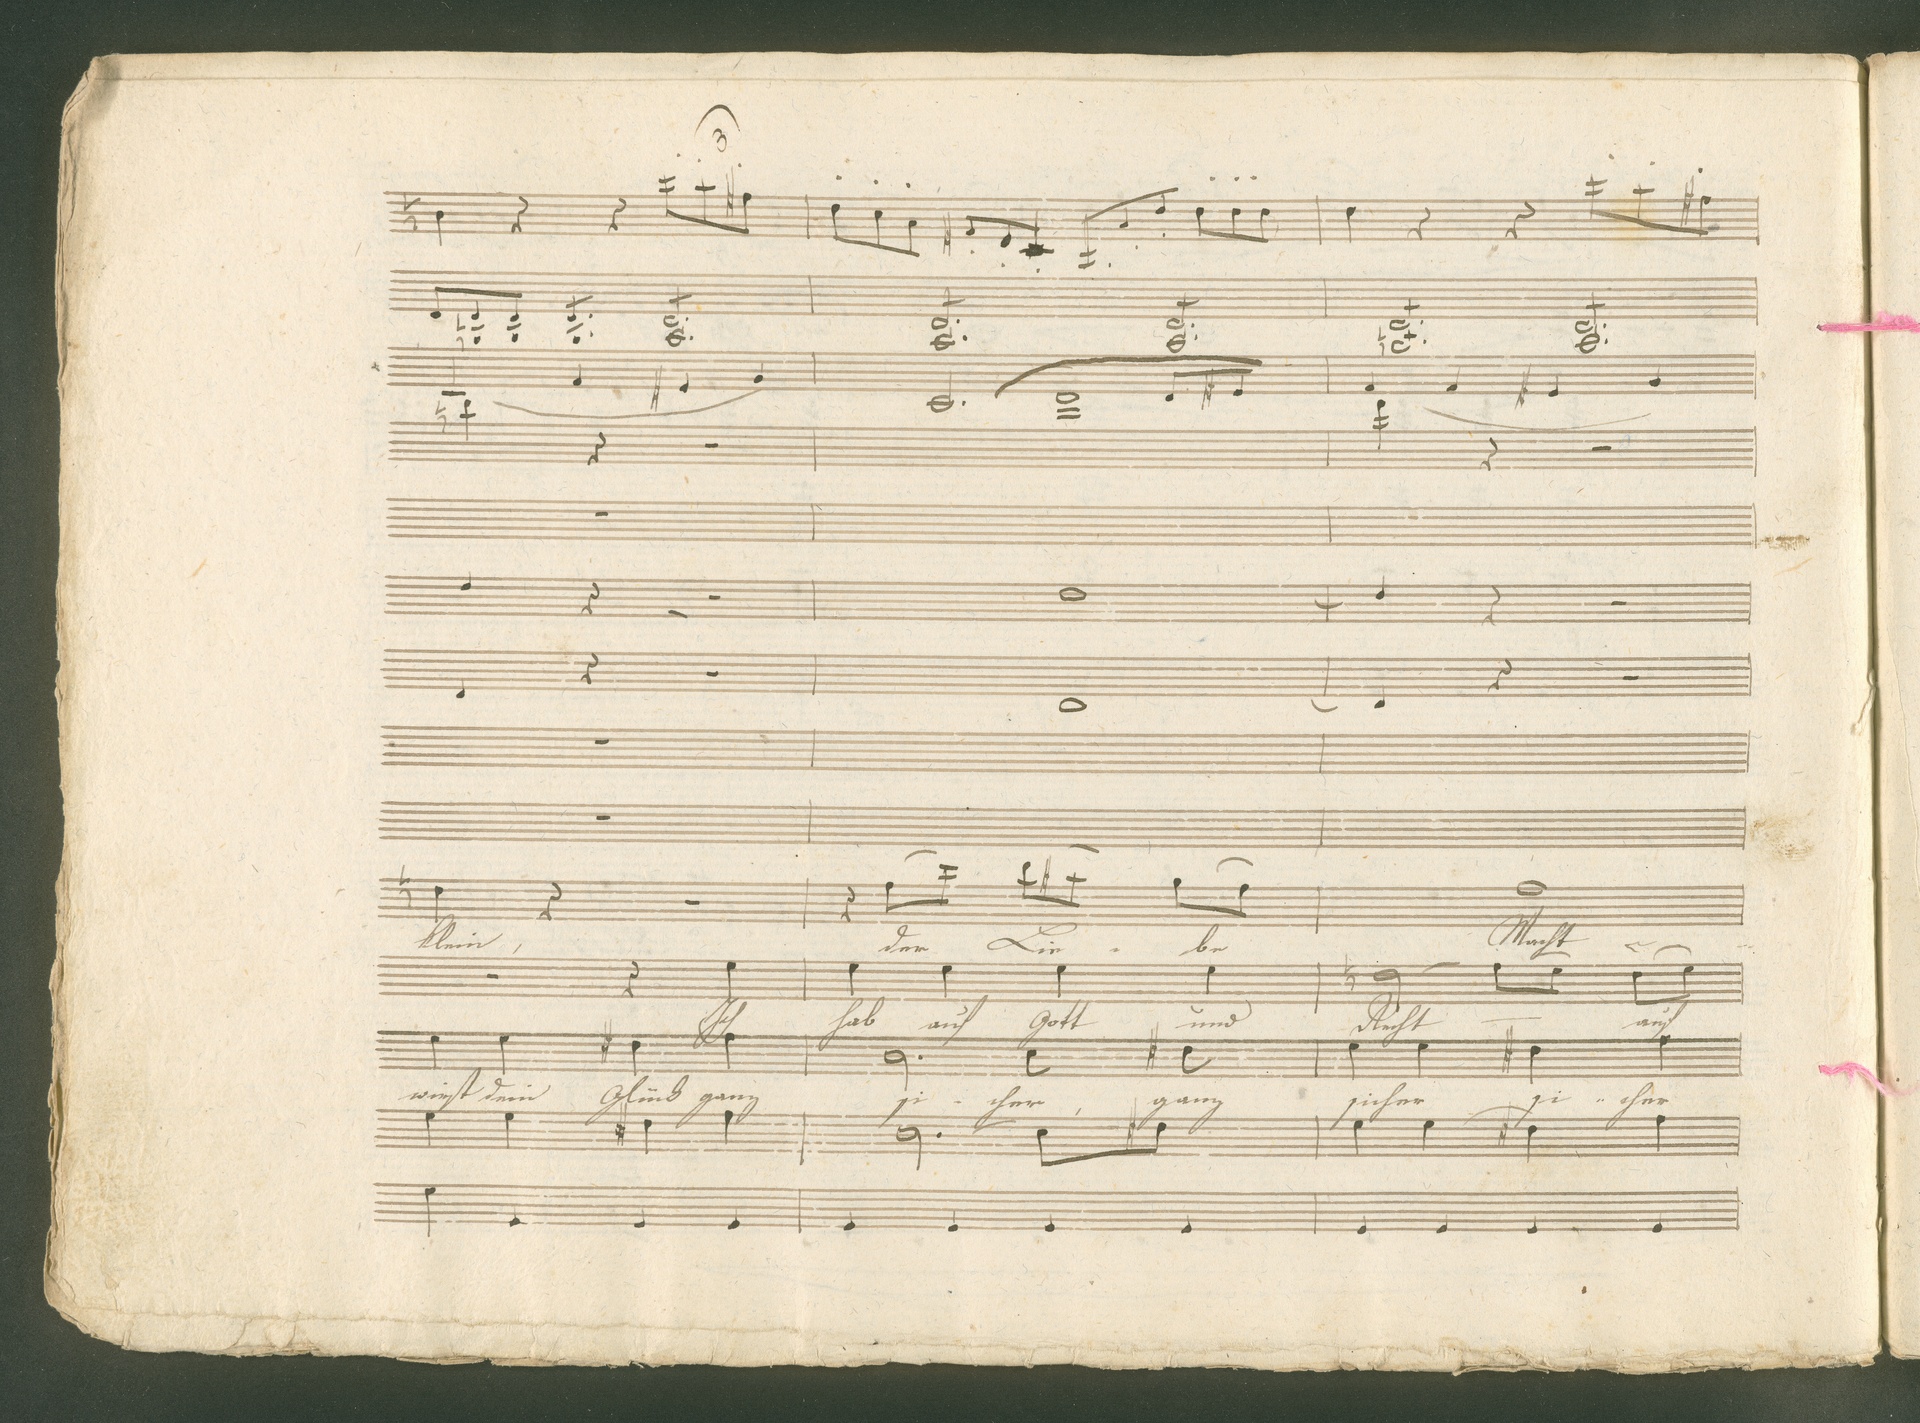 3
klein, der Lie - be Macht
Ich hab auf Gott und Recht — auf
wirst dein Glück ganz si - cher, ganz sicher si - cher